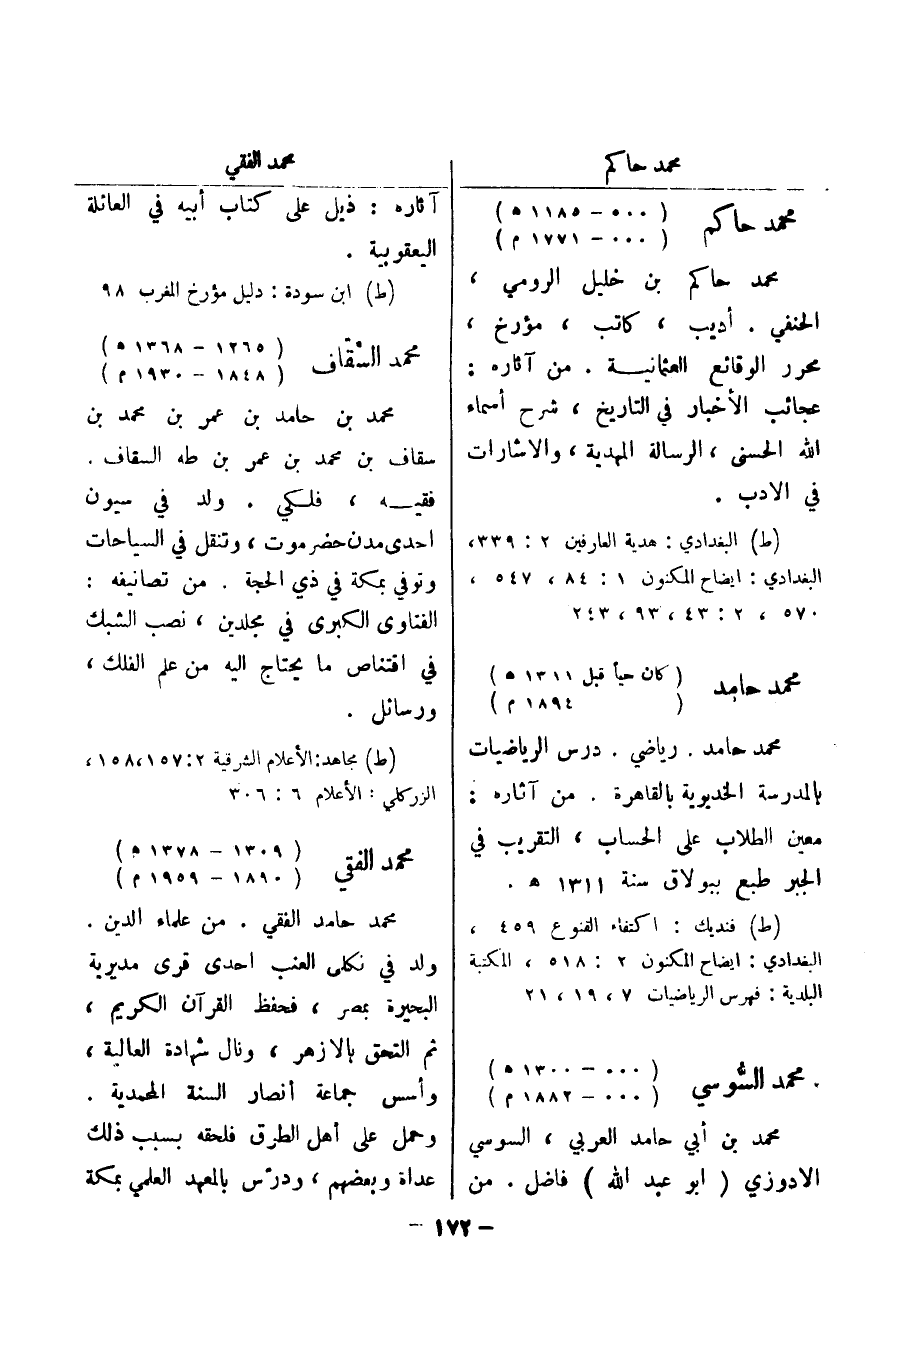 محمد حاكم
محمد حاكم
( ٠٠٠ - ١١٨٥ ه )
( ٠٠٠ - ١٧٧١ م )
محمد حاكم بن خليل الرومي ،
الحنفي . أديب ، كاتب ، مؤرخ ،
محرر الوقائع العثمانيــة . من آثاره :
عجائب الأخبار في التاريخ ، شرح أسماء
الله الحسنى ، الرسالة المهدية ، والاشارات
في الادب .
(ط) البغدادي : هدية العارفين ٢ : ٣٣٩،
البغدادي : ايضاح المكنون ١ : ٨٤ ، ٥٤٧ ،
٥٧٠ ، ٢ : ٤٣ ، ٩٣ ، ٢٤٣
محمد حامد
( كان حياً قبل ١٣١١ ه )
( ١٨٩٤ م )
محمد حامد . رياضي . درس الرياضيات
بالمدرسة الخديوية بالقاهرة . من آثاره :
معين الطلاب على الحساب ، التقريب في
الجبر طبع ببولاق سنة ١٣١١ ه .
(ط) فنديك : اكتفاء القنوع ٤٥٩ ،
البغدادي : ايضاح المكنون ٢ : ٥١٨ ، المكتبة
البلدية : فهرس الرياضيات ٧ ، ١٩ ، ٢١
محمد السُّوسي
( ٠٠٠ - ١٣٠٠ ه )
( ٠٠٠ - ١٨٨٢ م )
محمد بن أبي حامد العربي ، السوسي
الادوزي ( ابو عبد الله ) فاضل . من
محمد الفقي
آثاره : ذيل على كتاب أبيه في العائلة
اليعقوبية .
(ط) ابن سودة : دليل مؤرخ المغرب ٩٨
محمد السَّقَّاف
( ١٢٦٥ - ١٣٦٨ ه )
( ١٨٤٨ - ١٩٣٠ م )
محمد بن حامد بن عمر بن محمد بن
سقاف بن محمد بن عمر بن طه السقاف .
فقيــه ، فلــكي . ولد في سيون
احدى مدن حضرموت ، وتنقل في السياحات
وتوفي بمكة في ذي الحجة . من تصانيفه :
الفتاوى الكبرى في مجلدين ، نصب الشبك
في اقتناص ما يحتاج اليه من علم الفلك ،
ورسائل .
(ط) مجاهد:الأعلام الشرقية ٢: ١٥٧، ١٥٨ ،
الزركلي : الأعلام ٦ : ٣٠٦
محمد الفقي
( ١٣٠٩ - ١٣٧٨ ه )
( ١٨٩٠ - ١٩٥٩ م )
محمد حامد الفقي . من علماء الدين .
ولد في نكلى العنب احدى قرى مديرية
البحيرة بمصر ، فحفظ القرآن الكريم ،
ثم التحق بالازهر ، ونال شهادة العالية ،
وأسس جماعة أنصار السنة المحمدية .
وحمل على أهل الطرق فلحقه بسبب ذلك
عداة وبعضهم ، ودرّس بالمعهد العلمي بمكة
- ١٧٢ -